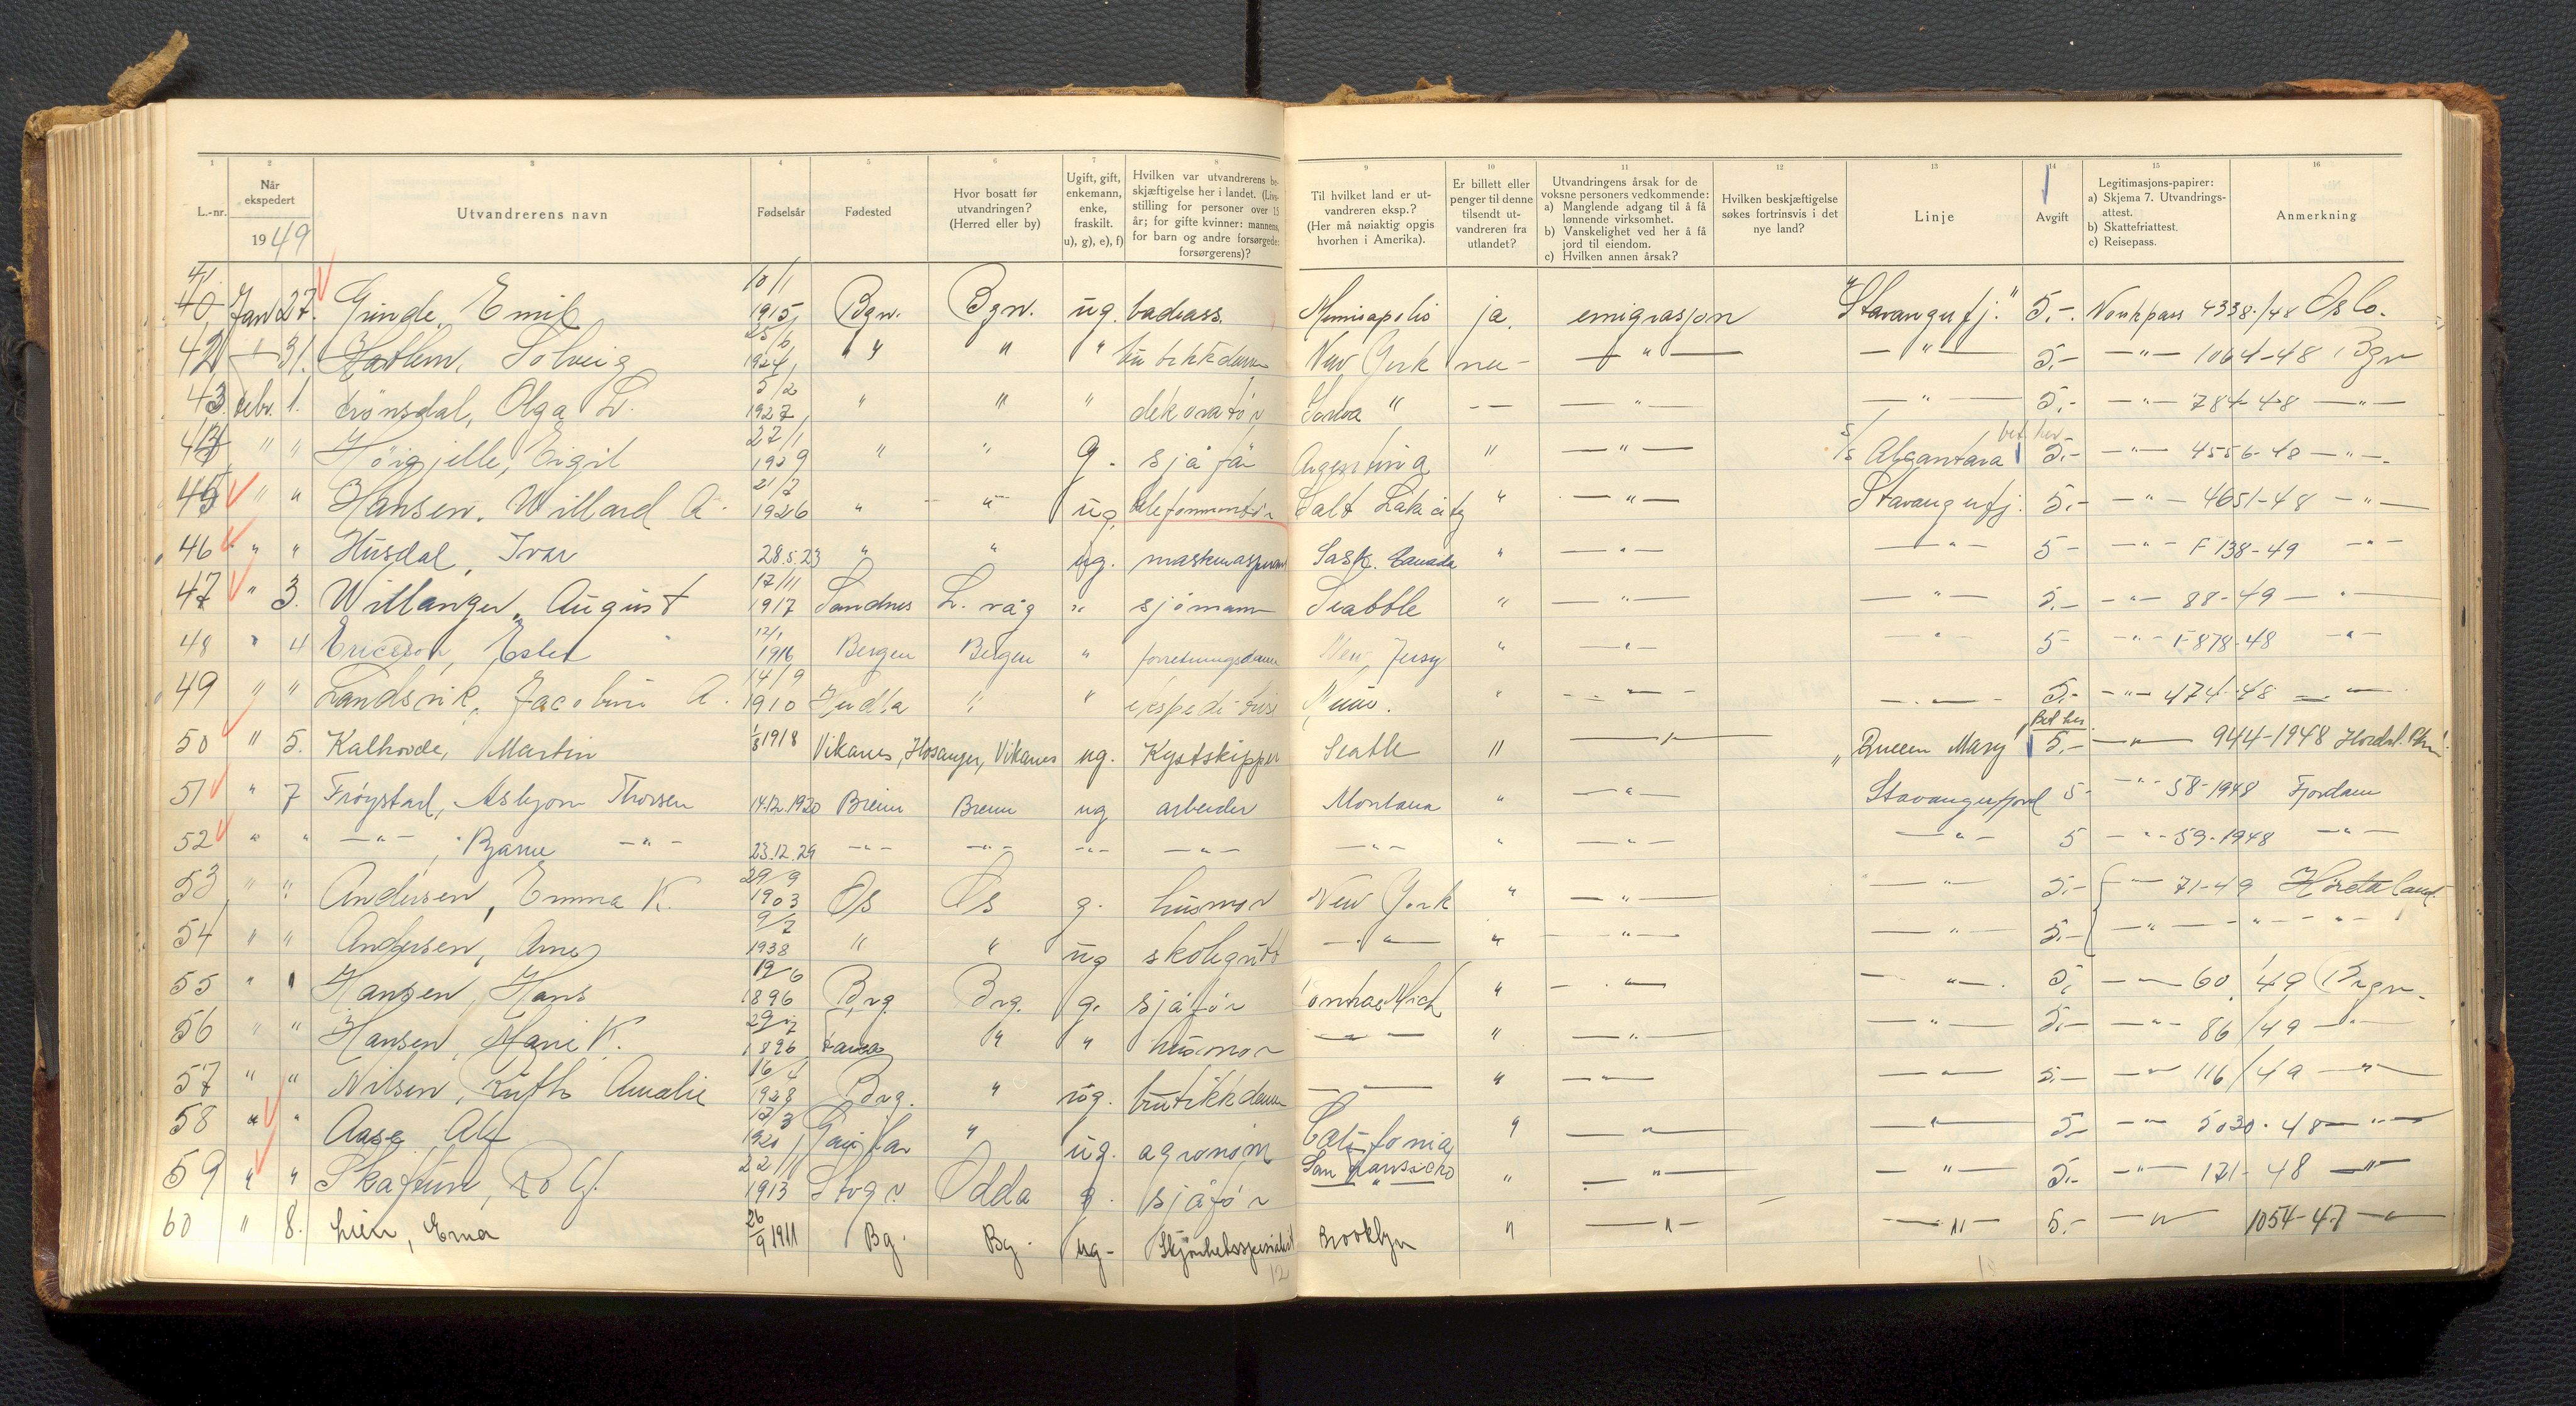 1 2 3 4 5 6 7 8 9 10 11 12 13 14 15 16
L.-nr. | Når ekspedert 1949 | Utvandrerens navn | Fødselsår | Fødested | Hvor bosatt før utvandringen? (Herred eller by) | Ugift, gift, enkemann, enke, fraskilt. u), g), e), f) | Hvilken var utvandrerens be- skjæftigelse her i landet. (Livs- stilling for personer over 15 år; for gifte kvinner: mannens, for barn og andre forsørgede: forsørgerens)? | Til hvilket land er ut- vandreren eksp.? (Her må nøiaktig opgis hvorhen i Amerika). | Er billett eller penger til denne tilsendt ut- vandreren fra utlandet? | Utvandringens årsak for de voksne personers vedkommende: a) Manglende adgang til å få lønnende virksomhet. b) Vanskelighet ved her å få jord til eiendom. c) Hvilken annen årsak? | Hvilken beskjæftigelse søkes fortrinsvis i det nye land? | Linje | Avgift | Legitimasjons-papirer: a) Skjema 7. Utvandrings- attest. b) Skattefriattest. c) Reisepass. | Anmerkning
41 40 Jan 27. Grinde, Emil 10/1 1915 Bgn. Bgn. ug. badeass. Minneapolis ja. emigrasjon "Stavangerfj." 5.- Norskpass 4338/48 Oslo.
42 " 31. Solveig 25/6 1924 " " " " butikkdame New York nei - " - - " - 5.- - " - 1064-48 Bgn
43 Febr. 1. Trönsdal, Olga L. 5/2 1927 " " " dekoratör " - - - " - - " - 5.- - " - 784-48 - " -
44 " " Höigjelle, Eigil 27/1 1929 " " g. sjåfør Argentina " - " - S/S Alcantara bet. her 5.- - " - 4556-48 - " -
45 " " Hansen, Willard A. 21/7 1926 " " ug. telefonmontör Salt Lake city " - " - Stavangerfj. 5.- - " - 4651-48 - " -
46 " " Husdal, Ivar 28.5.23 " " ug. maskinaspirant Sask. Canada " - " - - " - 5- - " - F 138-49 - " -
47 " 3. Willanger, August 17/11 1917 Sandnes L. våg " sjömann Seattle " - " - - " - 5.- - " - 88-49 - " -
48 " 4 Ericsson, Ester 12/1 1916 Bergen Bergen " forretningsdame New Jersey " - " - - " - 5- - " - F 878-48 - " -
49 " " Landsvik, Jacobine A. 14/9 1910 Herdla " " ekspeditrise " - " - - " - 5.- - " - 474-48 - " -
50 " 5. Kalhovde, Martin 1/8 1918 Vikanes, Hosanger, Vikanes ug. Kystskipper Seattle " - " - "Queen Mary" Bet her. 5.- - " - 944-1948 Hordal.
51 " 7 Frøystad, Asbjørn Thorsen 14.12.1920 Breim Breim ug arbeider Montana " - " - Stavangerfjord 5- - " - 58-1948 Fjordane
52 " " - " -, Bjarne - " - 23.12.29 - " - - " - - " - - " - - " - " - " - - " - 5 - " - 59-1948 - " -
53 " " Andersen, Emma K. 29/9 1903 Os Os g. husmor New York " - " - - " - 5.- - " - 71-49 Hordaland.
54 " " Andersen, Arne 9/7 1938 " " ug skolegutt - " - " - " - - " - 5.- - " - - " - - " -
55 " " Hansen, Hans 19/6 1896 Brg. Brg. g. sjåför Mich " - " - - " - 5.- - " - 60/49 Brgn.
56 " " Hansen, Marie K. 29/7 1896 " " husmor - " - " - " - - " - 5.- - " - 86/49 - " -
57 " " Nilsen, Ruth Amalie 16/4 1928 Brg. " ug. butikkdame - " - " - " - - " - 5.- - " - 116/49 - " -
58 " " Aase Alf 12/3 1920 " ug. agronom California " - " - - " - 5.- - " - 5030-48 - " -
59 " " Skaftun, Rolf. 22/11 1913 Odda g. sjåför San Fransiscko " - " - - " - 5.- - " - 121-48 - " -
60 " 8. Lien, Erna 26/9 1911 Bg. Bg. ug- Skjönhetsspesialist Brooklyn " - " - - " - 5.- - " - 1054-47 - " -
12